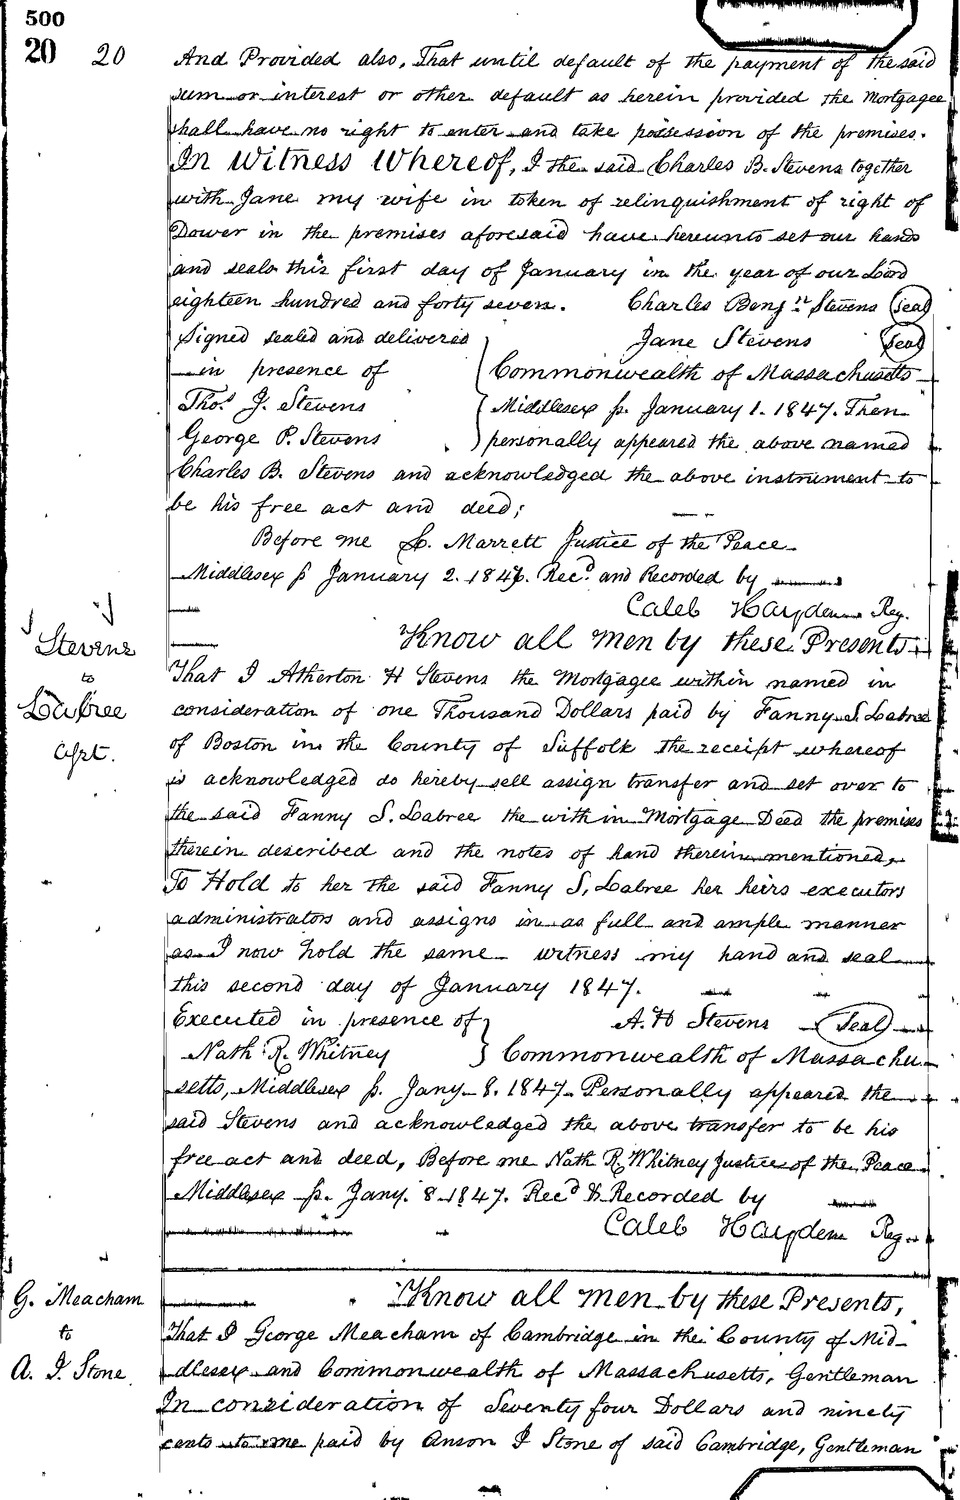 500
20 20
And Provided also, That until default of the payment of the said
sum or interest or other default as herein provided the Mortgagee
shall have no right to enter and take possession of the premises.
In Witness Whereof, I the said Charles B. Stevens together
with Jane my wife in token of relinquishment of right of
Dower in the premises aforesaid have hereunto set our hands
and seals this first day of January in the year of our Lord
eighteen hundred and forty seven. Charles Benjn Stevens (seal)
Signed sealed and delivered Jane Stevens (seal)
in presence of Commonwealth of Massachusetts
Thos. J. Stevens Middlesex ss. January 1. 1847. Then
George P. Stevens personally appeared the above named
Charles B. Stevens and acknowledged the above instrument to
be his free act and deed;
Before me L. Marrett Justice of the Peace
Middlesex ss January 2. 1847. Recd. and Recorded by
Caleb Hayden Reg.
Stevens
to
Labree
Know all men by these Presents,
That I Atherton H Stevens the Mortgagee within named in
consideration of one Thousand Dollars paid by Fanny S. Labree
of Boston in the County of Suffolk the receipt whereof
is acknowledged do hereby sell assign transfer and set over to
the said Fanny S. Labree the within Mortgage Deed the premises
therein described and the notes of hand therein mentioned,
To Hold to her the said Fanny S, Labree her heirs executors
administrators and assigns in as full and ample manner
as I now hold the same witness my hand and seal
this second day of January 1847.
Executed in presence of A. H Stevens (seal)
Nath R. Whitney Commonwealth of Massachu
setts, Middlesex ss. Jany 8. 1847 Personally appeared the
said Stevens and acknowledged the above transfer to be his
free act and deed, Before me Nath R Whitney Justice of the Peace
Middlesex ss. Jany. 8 1847. Recd & Recorded by
Caleb Hayden Reg.
G. Meacham
to
A. J. Stone
Know all men by these Presents,
That I George Meacham of Cambridge in the County of Mid-
dlesex and Commonwealth of Massachusetts, Gentleman
In consideration of Seventy four Dollars and ninety
cents to me paid by Anson J Stone of said Cambridge, Gentleman